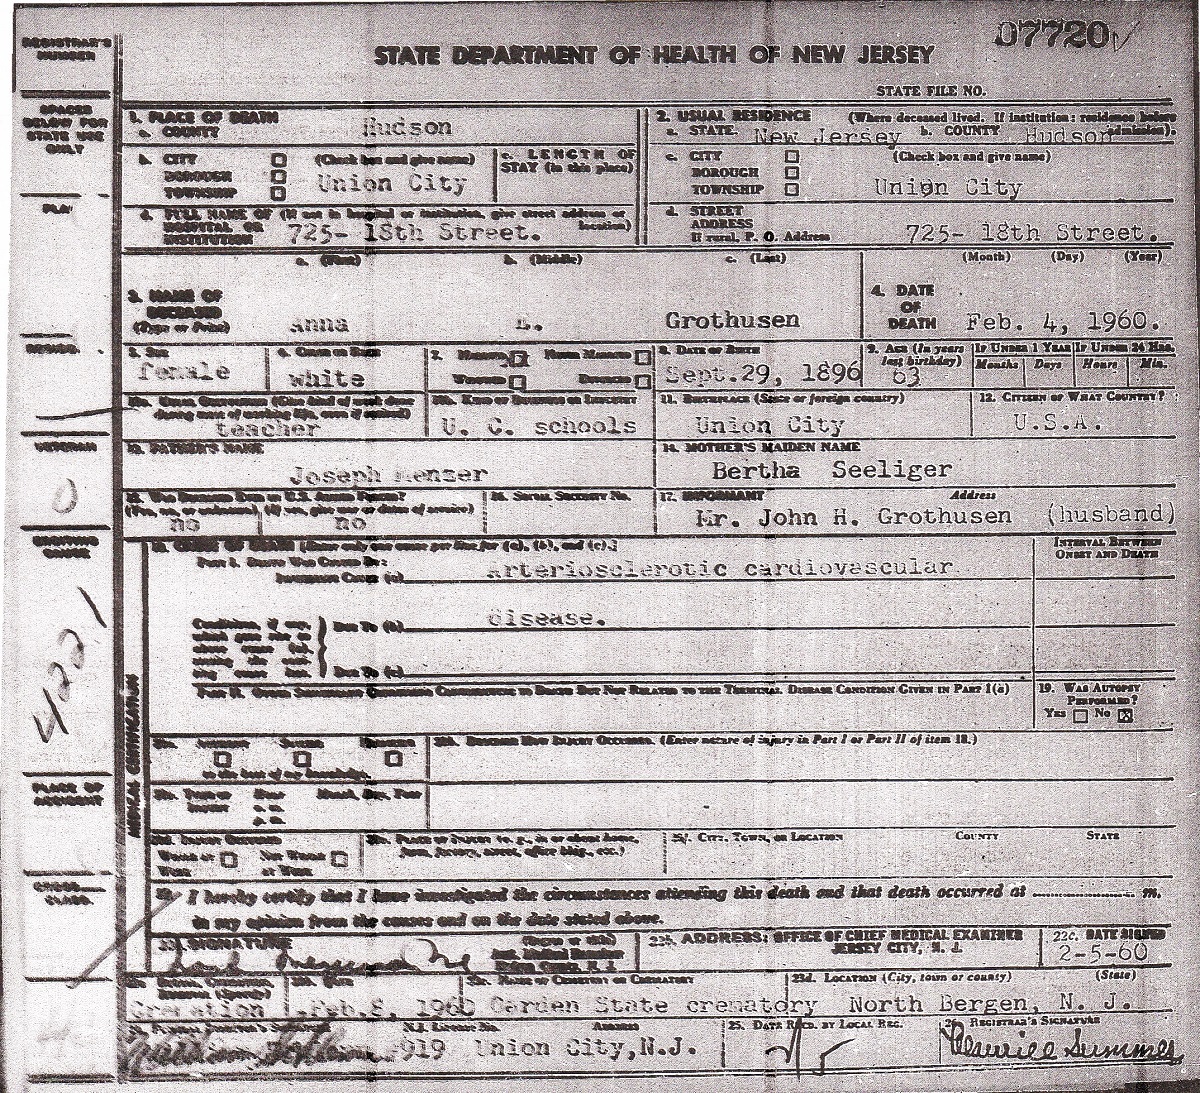 REGISTRAR'S NUMBER
07720
STATE DEPARTMENT OF HEALTH OF NEW JERSEY
STATE FILE NO.
SPACES BELOW FOR STATE USE ONLY
1. PLACE OF DEATH
a. COUNTY Hudson
2. USUAL RESIDENCE (Where deceased lived. If institution: residence before admission).
a. STATE New Jersey b. COUNTY Hudson
b. CITY BOROUGH TOWNSHIP (Check box and give name) Union City
c. LENGTH OF STAY (in this place)
c. CITY BOROUGH TOWNSHIP (Check box and give name) Union City
d. FULL NAME OF HOSPITAL OR INSTITUTION (If not in hospital or institution, give street address or location) 725- 18th Street.
d. STREET ADDRESS If rural, P. O. Address 725- 18th Street.
3. NAME OF DECEASED (Type or Print)
a. (First) b. (Middle) c. (Last)
Anna Grothusen
4. DATE OF DEATH (Month) (Day) (Year)
Feb. 4, 1960.
5. SEX female
6. COLOR OR RACE white
7. MARRIED NEVER MARRIED WIDOWED DIVORCED
8. DATE OF BIRTH Sept.29, 1896
9. AGE (In years last birthday) 63
IF UNDER 1 YEAR Months Days
IF UNDER 24 HRS. Hours Min.
10a. USUAL OCCUPATION (Give kind of work done during most of working life, even if retired) teacher
10b. KIND OF BUSINESS OR INDUSTRY U. C. schools
11. BIRTHPLACE (State or foreign country) Union City
12. CITIZEN OF WHAT COUNTRY? U.S.A.
VETERAN
0
13. FATHER'S NAME Joseph Menzer
14. MOTHER'S MAIDEN NAME Bertha Seeliger
15. WAS DECEASED EVER IN U.S. ARMED FORCES? (Yes, no, or unknown) (If yes, give war or dates of service) no no
16. SOCIAL SECURITY NO.
17. INFORMANT Address
Mr. John H. Grothusen (husband)
18. CAUSE OF DEATH (Enter only one cause per line for (a), (b), and (c).)
INTERVAL BETWEEN ONSET AND DEATH
PART I. DEATH WAS CAUSED BY:
IMMEDIATE CAUSE (a) Arteriosclerotic cardiovascular
disease.
Conditions, if any, which gave rise to above cause (a), stating the underlying cause last.
DUE TO (b)
DUE TO (c)
422.1
PART II. OTHER SIGNIFICANT CONDITIONS CONTRIBUTING TO DEATH BUT NOT RELATED TO THE TERMINAL DISEASE CONDITION GIVEN IN PART I(a)
19. WAS AUTOPSY PERFORMED? YES NO X
MEDICAL CERTIFICATION
20a. ACCIDENT SUICIDE HOMICIDE
to the best of my knowledge.
20b. DESCRIBE HOW INJURY OCCURRED. (Enter nature of injury in Part I or Part II of item 18.)
PLACE OF ACCIDENT
20c. TIME OF INJURY Hour a. m. p. m. Month, Day, Year
20d. INJURY OCCURRED WHILE AT WORK NOT WHILE AT WORK
20e. PLACE OF INJURY (e. g., in or about home, farm, factory, street, office bldg., etc.)
20f. CITY, TOWN, OR LOCATION COUNTY STATE
I hereby certify that I have investigated the circumstances attending this death and that death occurred at m.
in my opinion from the causes and on the date stated above.
SIGNATURE (Degree or title)
22b. ADDRESS: OFFICE OF CHIEF MEDICAL EXAMINER JERSEY CITY, N. J.
22c. DATE SIGNED 2-5-60
23a. BURIAL, CREMATION, REMOVAL (Specify) Cremation
23b. DATE Feb.8, 1960
23c. NAME OF CEMETERY OR CREMATORY Garden State crematory
23d. LOCATION (City, town or county) (State) North Bergen, N. J.
N.J. LICENSE NO. ADDRESS
919 Union City,N.J.
25. DATE RECD. BY LOCAL REG. 2/5
REGISTRAR'S SIGNATURE